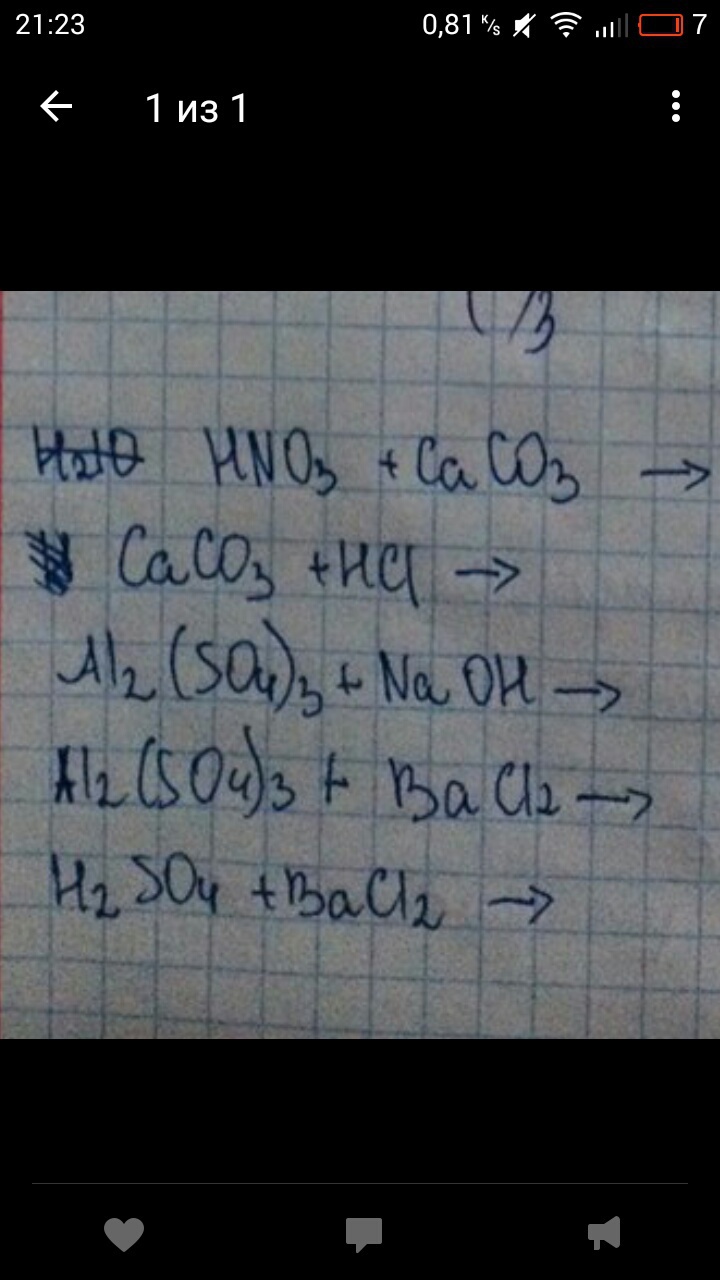 21:23 0,81 K/s 7
1 из 1
HNO3 + CaCO3 →
CaCO3 + HCl →
Al2(SO4)3 + NaOH →
Al2(SO4)3 + BaCl2 →
H2SO4 + BaCl2 →